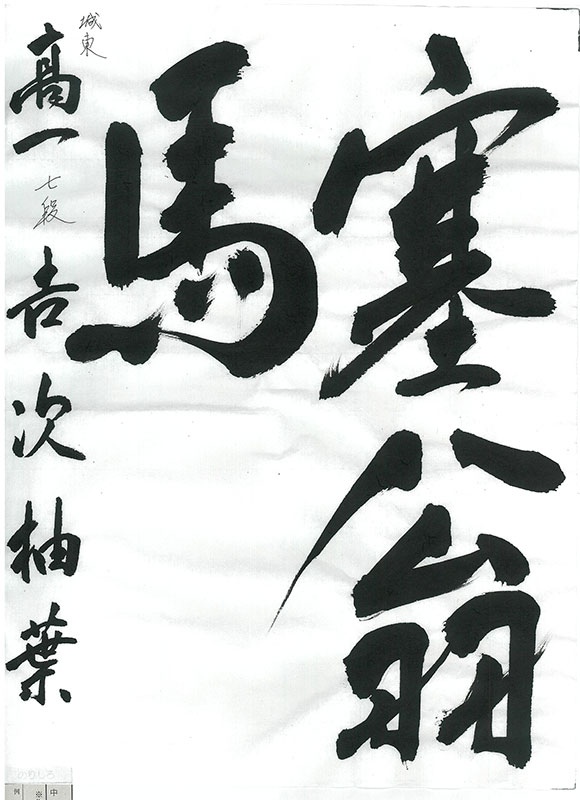 塞翁
馬
城東
高一 七段 吉次柚葉
のりしろ
中
※